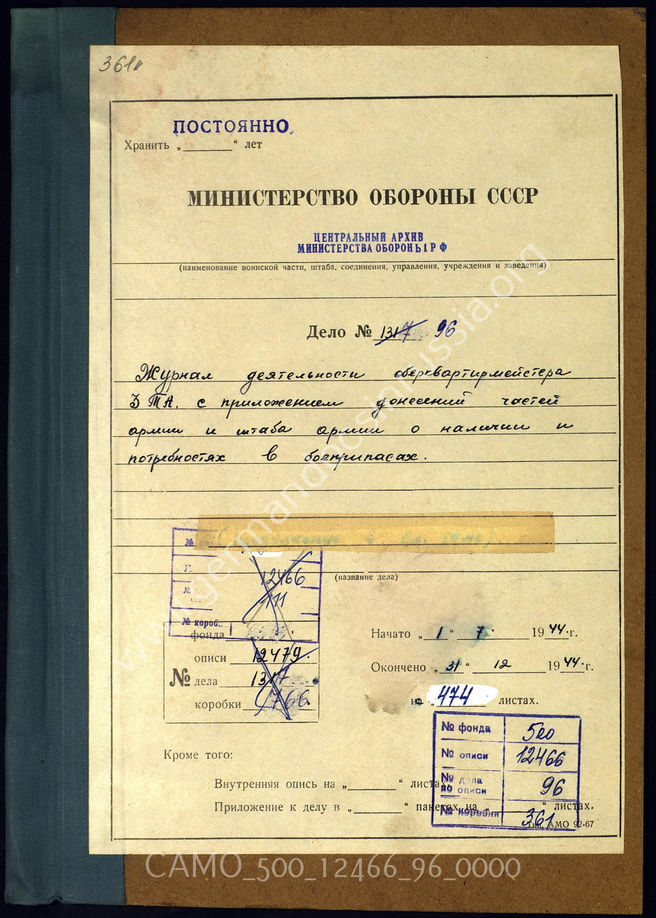 361
ПОСТОЯННО
Хранить „______“ лет
МИНИСТЕРСТВО ОБОРОНЫ СССР
ЦЕНТРАЛЬНЫЙ АРХИВ
МИНИСТЕРСТВА ОБОРОНЫ РФ
(наименование воинской части, штаба, соединения, управления, учреждения и заведения)
Дело № 1317 96
Журнал деятельности оберквартирмейстера
3 ТА. с приложением донесений частей
армии и штаба армии о наличии и
потребностях в боеприпасах.
(название дела)
12466
111
№ короб.
фонда
описи 12479.
№ дела 1317
коробки 766.
Начато „1“ 7 1944 г.
Окончено „31“ 12 1944 г.
на „474 листах.
№ фонда 500
№ описи 12466
№ дела по описи 96
№ коробки 361
Кроме того:
Внутренняя опись на „______“ листах
Приложение к делу в „______“ пакетах на „______“ листах.
АМО 92-67
www.germandocsinrussia.org
CAMO_500_12466_96_0000